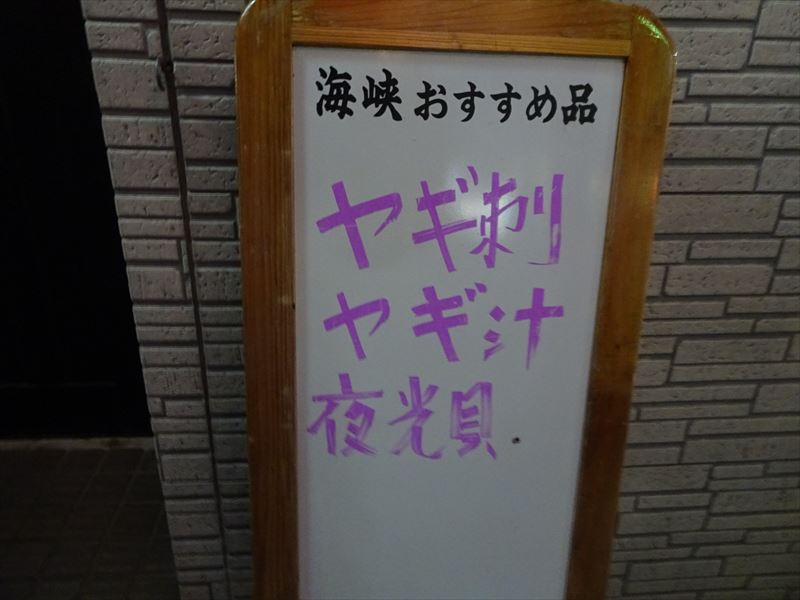 海峡 おすすめ品
ヤギ刺
ヤギ汁
夜光貝